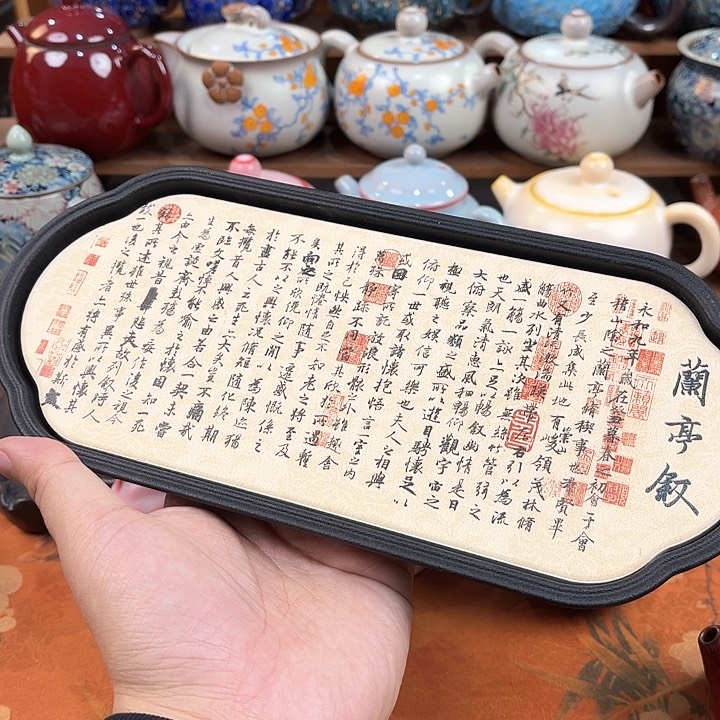 蘭亭叙
永和九年歲在癸丑暮春之初會于會
稽山陰之蘭亭脩稧事也羣賢畢
至少長咸集此地有崇山峻領茂林脩
竹又有清流激湍暎帶左右引以為流
觴曲水列坐其次雖無絲竹管弦之
盛一觴一詠亦足以暢叙幽情是日
也天朗氣清惠風和暢仰觀宇宙之
大俯察品類之盛所以遊目騁懷足以
極視聽之娛信可樂也夫人之相與
俯仰一世或取諸懷抱悟言一室之內
或因寄所託放浪形骸之外雖趣舍
萬殊靜躁不同當其欣於所遇暫
得於己快然自足不知老之將至及
其所之既惓情隨事遷感慨係之
矣向之所欣俛仰之間以為陳迹猶
不能不以之興懷況脩短隨化終期
於盡古人云死生亦大矣豈不痛哉
每攬昔人興感之由若合一契未嘗
不臨文嗟悼不能喻之於懷固知一死
生為虛誕齊彭殤為妄作後之視今
亦由今之視昔悲夫故列叙時人
錄其所述雖世殊事異所以興懷其
致一也後之攬者亦將有感於斯
文